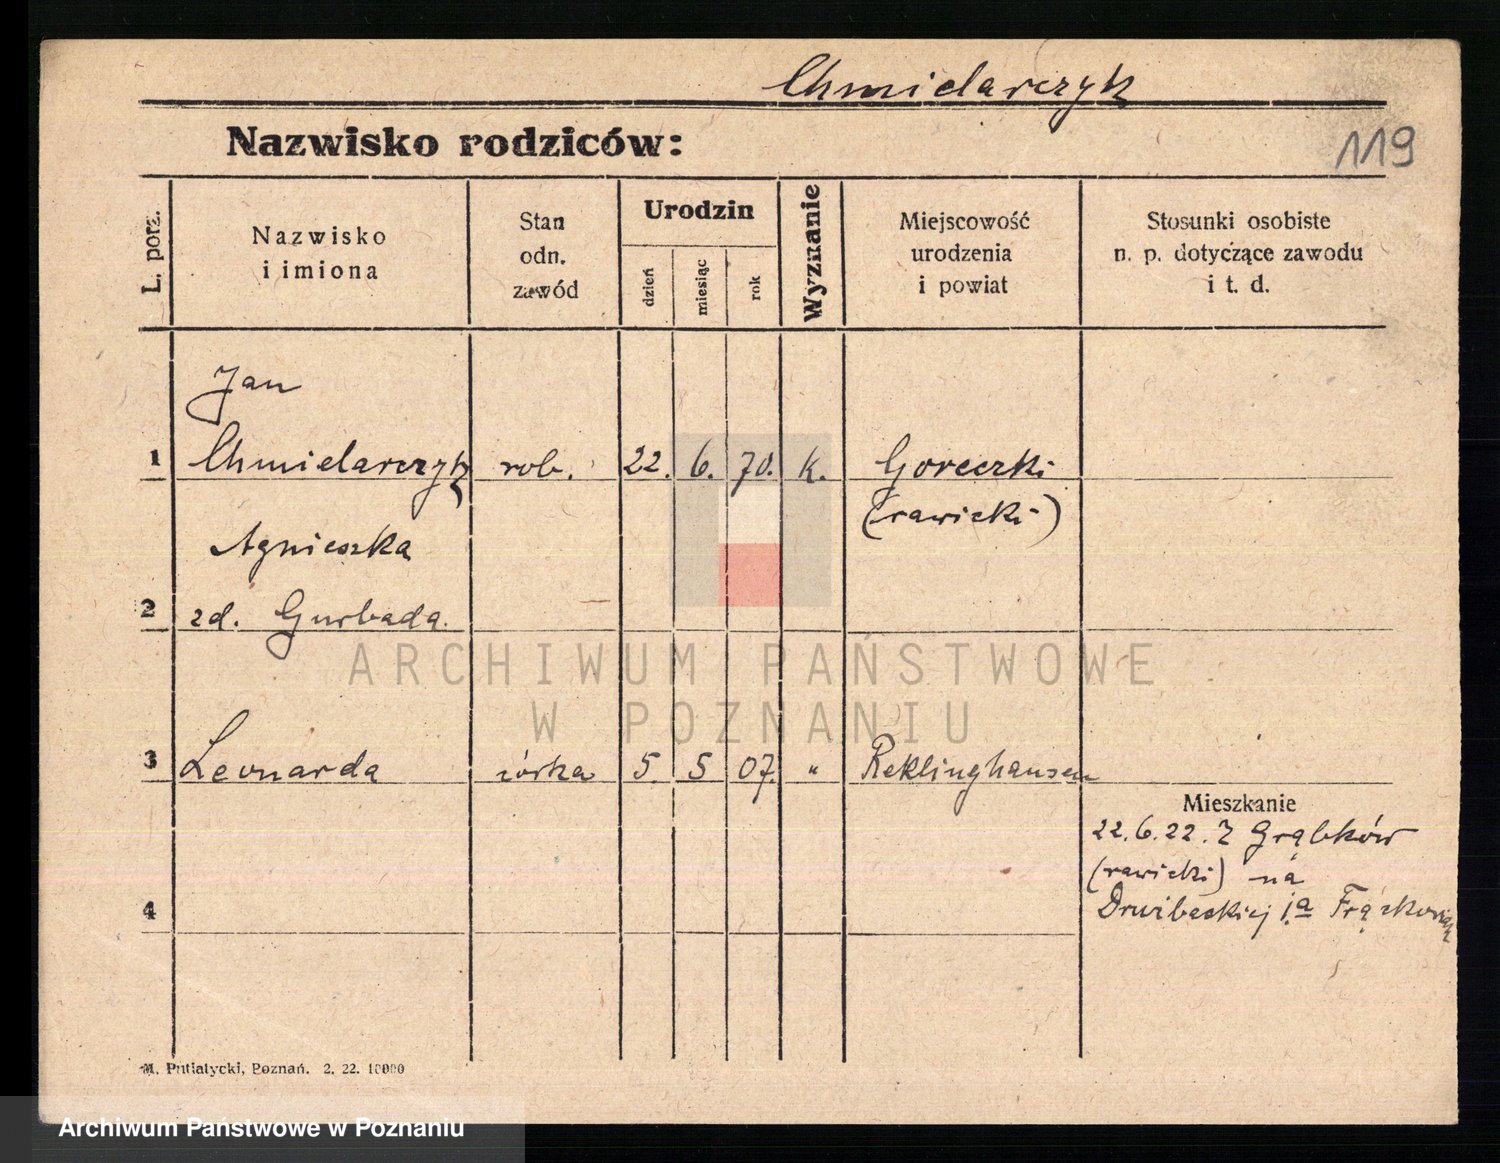 Chmielarczyk
Nazwisko rodziców:
119
L. porz.
Nazwisko
i imiona
Stan
odn.
zawód
Urodzin
dzień
miesiąc
rok
Wyznanie
Miejscowość
urodzenia
i powiat
Stosunki osobiste
n. p. dotyczące zawodu
i t. d.
Jan
1 Chmielarczyk rob. 22. 6. 70. k. Goreczki
(rawicki)
Agnieszka
2 zd. Gurbada.
3 Leonarda córka 5. 5 07. " Reklinghausen
Mieszkanie
22.6.22. Z Grąbków
(rawicki) na
4
i.a Frąckowiak
M. Putiatycki, Poznań. 2. 22. 10000
ARCHIWUM PAŃSTWOWE
W POZNANIU
Archiwum Państwowe w Poznaniu